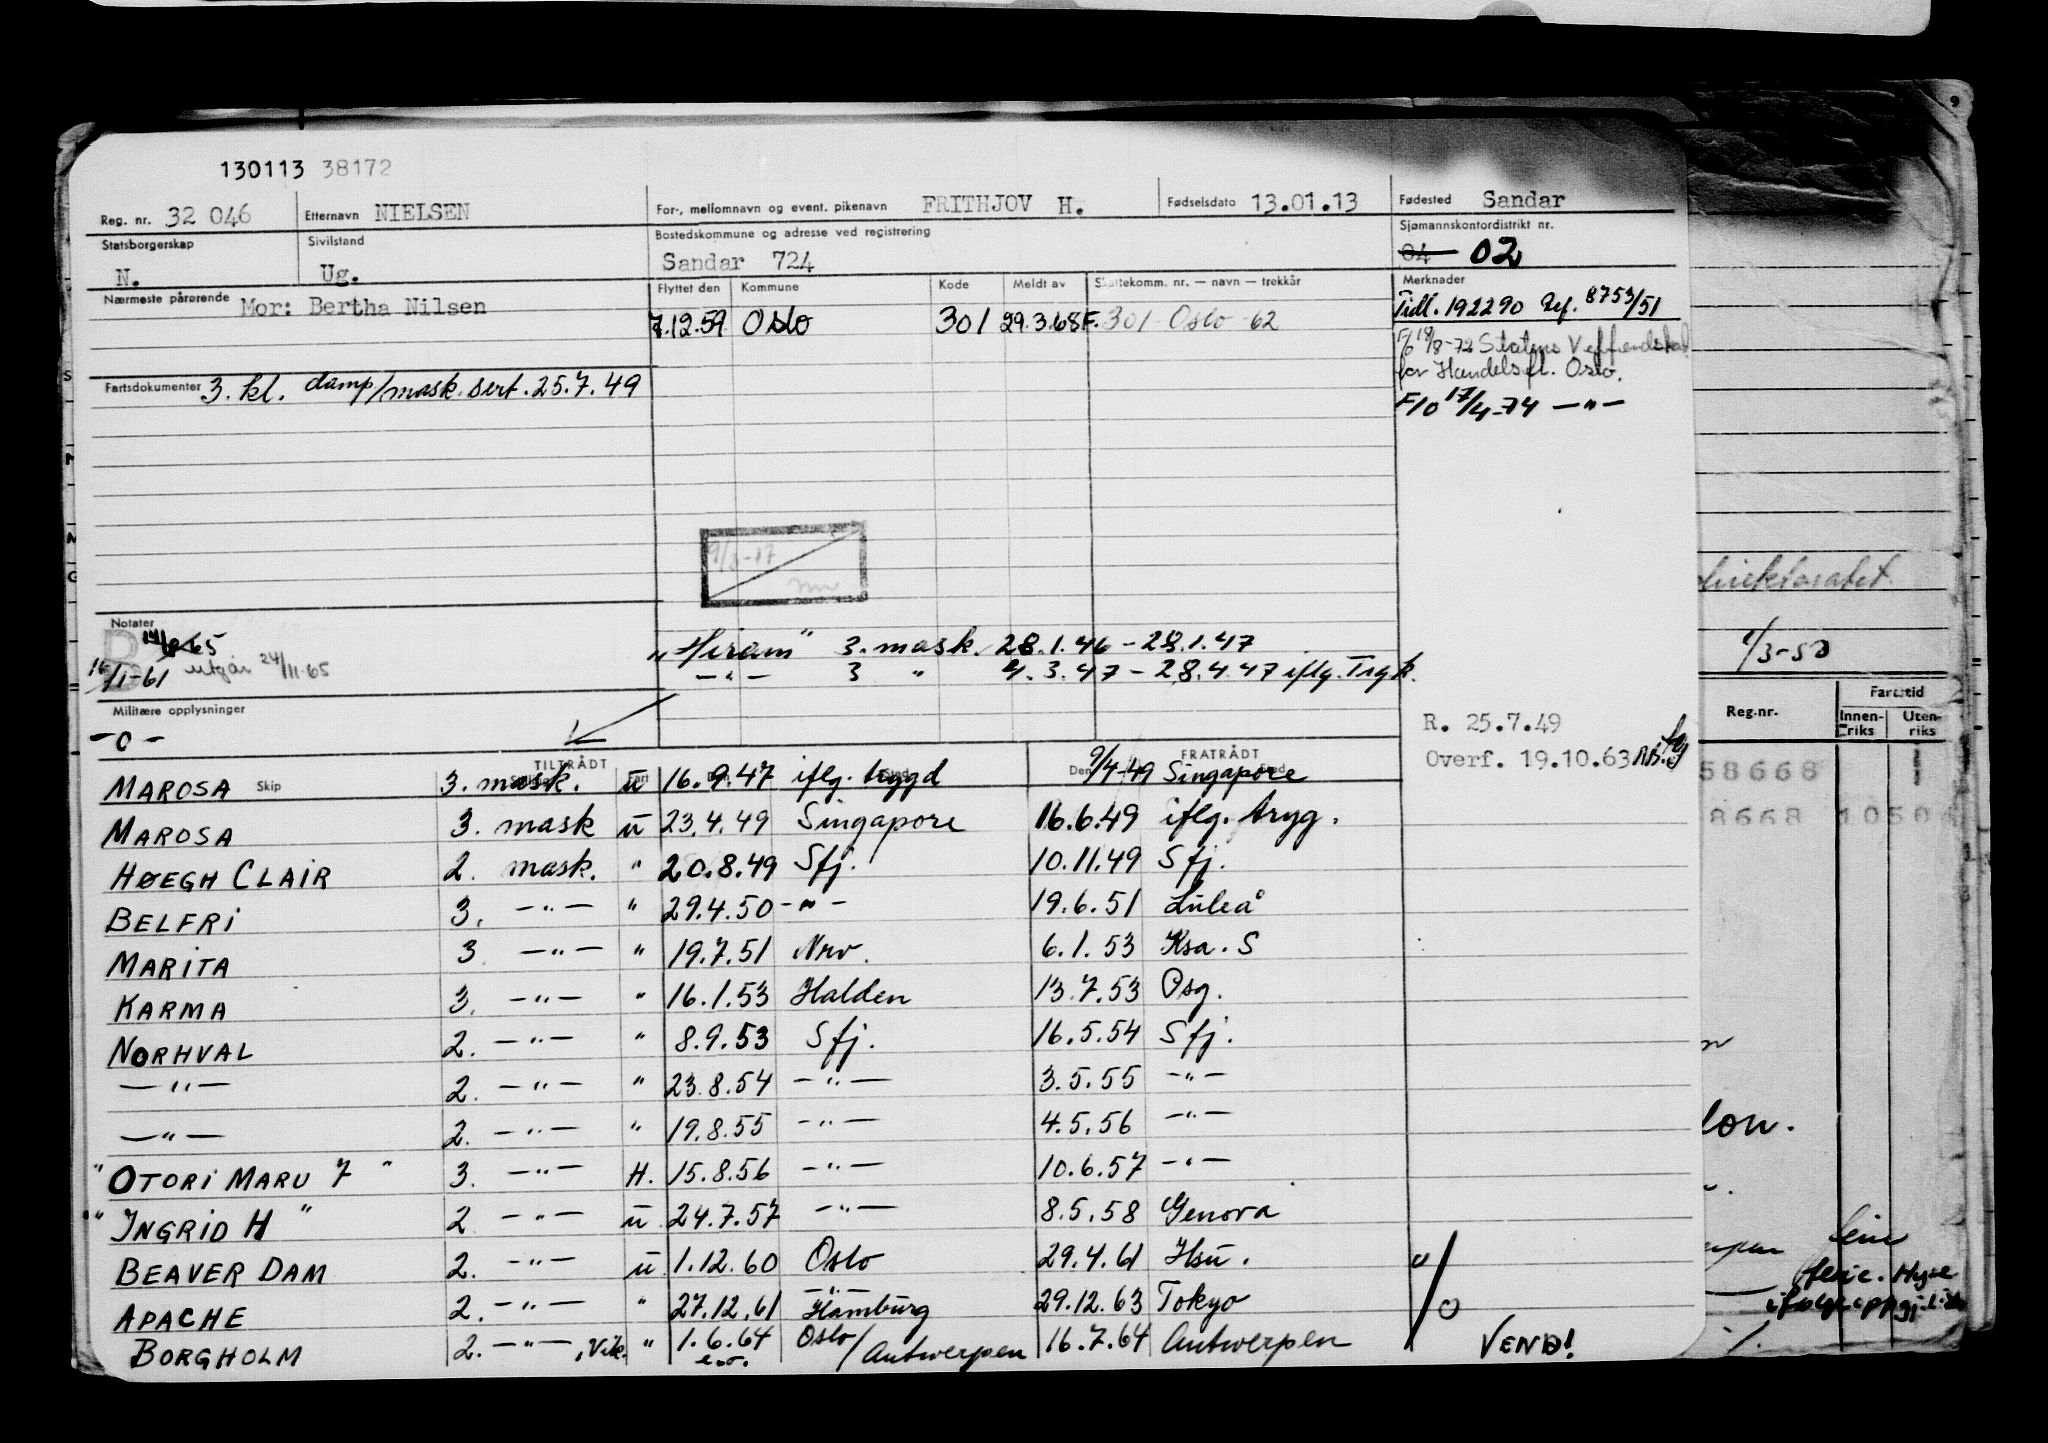 130113 38172
Reg. nr. 32 046 Etternavn NIELSEN For-, mellomnavn og event. pikenavn FRITHJOV H. Fødselsdato 13.01.13 Fødested Sandar
Statsborgerskap N. Sivilstand Ug. Bostedskommune og adresse ved registrering Sandar 724 Sjømannskontordistrikt nr. 04 02
Nærmeste pårørende Mor: Bertha Nilsen Flyttet den Kommune Kode Meldt av Skattekomm. nr. — navn — trekkår Merknader
7.12.59 Oslo 301 29.3.68 F. 301 Oslo -62 Tidl. 192290 Ref. 8753/51
F/o 18/8-72 Statens
for Handelsfl. Oslo.
F/o 17/4-74 —"—
Fartsdokumenter 3. kl. damp/mask. sert. 25.7.49
Notater
utgår 24/11-65
16/1-61
"Hiram" 3. mask. 28.1.46 - 28.1.47
—"— 3 " 4.3.47 - 28.4.47 iflg. Trgk.
Militære opplysninger
-o-
R. 25.7.49
Overf. 19.10.63
TILTRÅDT FRATRÅDT
Skip Fart Den Sted
MAROSA 3. mask. u 16.9.47 iflg. trygd 9/4-49 Singapore
MAROSA 3. mask u 23.4.49 Singapore 16.6.49 iflg. tryg.
HØEGH CLAIR 2. mask. " 20.8.49 Sfj. 10.11.49 Sfj.
BELFRI 3. —"— " 29.4.50 -"- 19.6.51 Luleå
MARITA 3 —"— " 19.7.51 Nrv. 6.1.53 Ksa. S
KARMA 3. —"— " 16.1.53 Halden 13.7.53 Psg.
NORHVAL 2. —"— " 8.9.53 Sfj. 16.5.54 Sfj.
—"— 2. —"— " 23.8.54 —"— 3.5.55 —"—
—"— 2. —"— " 19.8.55 —"— 4.5.56 —"—
"OTORI MARU 7" 3. —"— H. 15.8.56 —"— 10.6.57 —"—
"INGRID H" 2 —"— u 24.7.57 —"— 8.5.58 Genova
BEAVER DAM 2. —"— u 1.12.60 Oslo 29.4.61 Hsu.
APACHE 2. —"— " 27.12.61 —"— Hamburg 29.12.63 Tokyo
BORGHOLM 2. —"—, Vik. " 1.6.64 e.o. Oslo/Antwerpen 16.7.64 Antwerpen
VEND!
direktoratet
1/3-50
Reg.nr. Fartstid
Innenriks Utenriks
58668
8668 1050